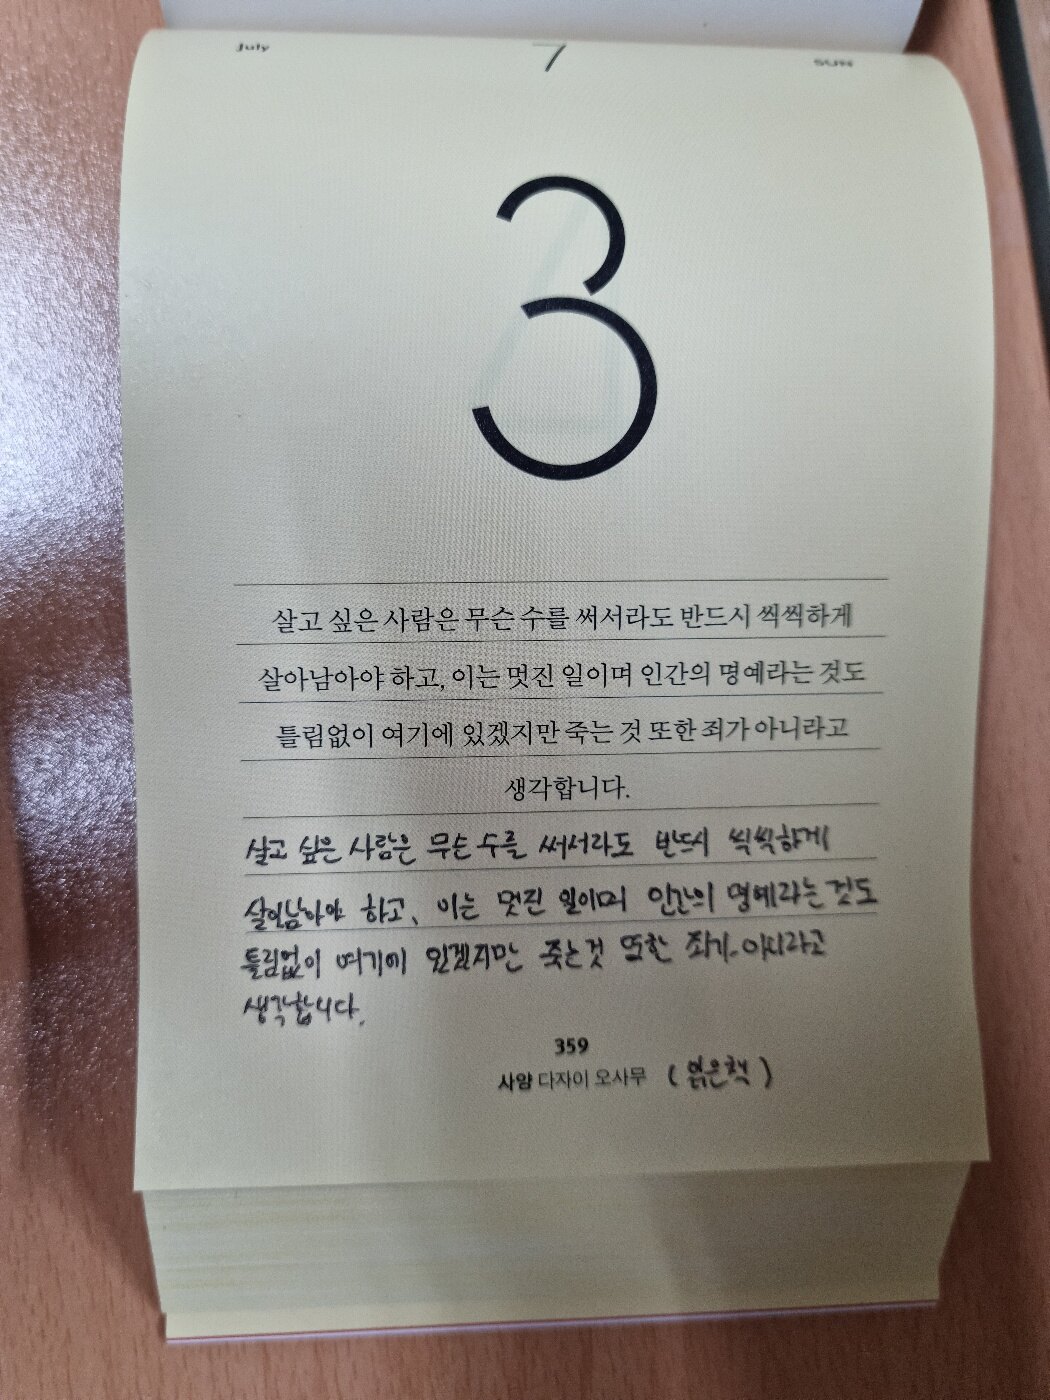 July 7 SUN
3
살고 싶은 사람은 무슨 수를 써서라도 반드시 씩씩하게
살아남아야 하고, 이는 멋진 일이며 인간의 명예라는 것도
틀림없이 여기에 있겠지만 죽는 것 또한 죄가 아니라고
생각합니다.
살고 싶은 사람은 무슨 수를 써서라도 반드시 씩씩하게
살아남아야 하고, 이는 멋진 일이며 인간의 명예라는 것도
틀림없이 여기에 있겠지만 죽는 것 또한 죄가 아니라고
생각합니다.
359
사양 다자이 오사무 ( 읽은책 )